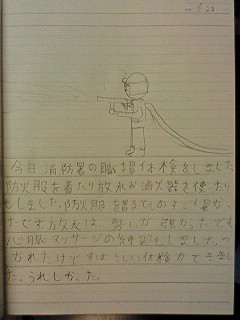 今日消防署の職場体検をしました
防火服を着たり放水お消火器を使ったり
もしました。防火服を
たです放水は勢いが強かったです
心臓マッサージの練習もしました。つ
かれたけどすばらしい体検ができまし
た。うれしかった。